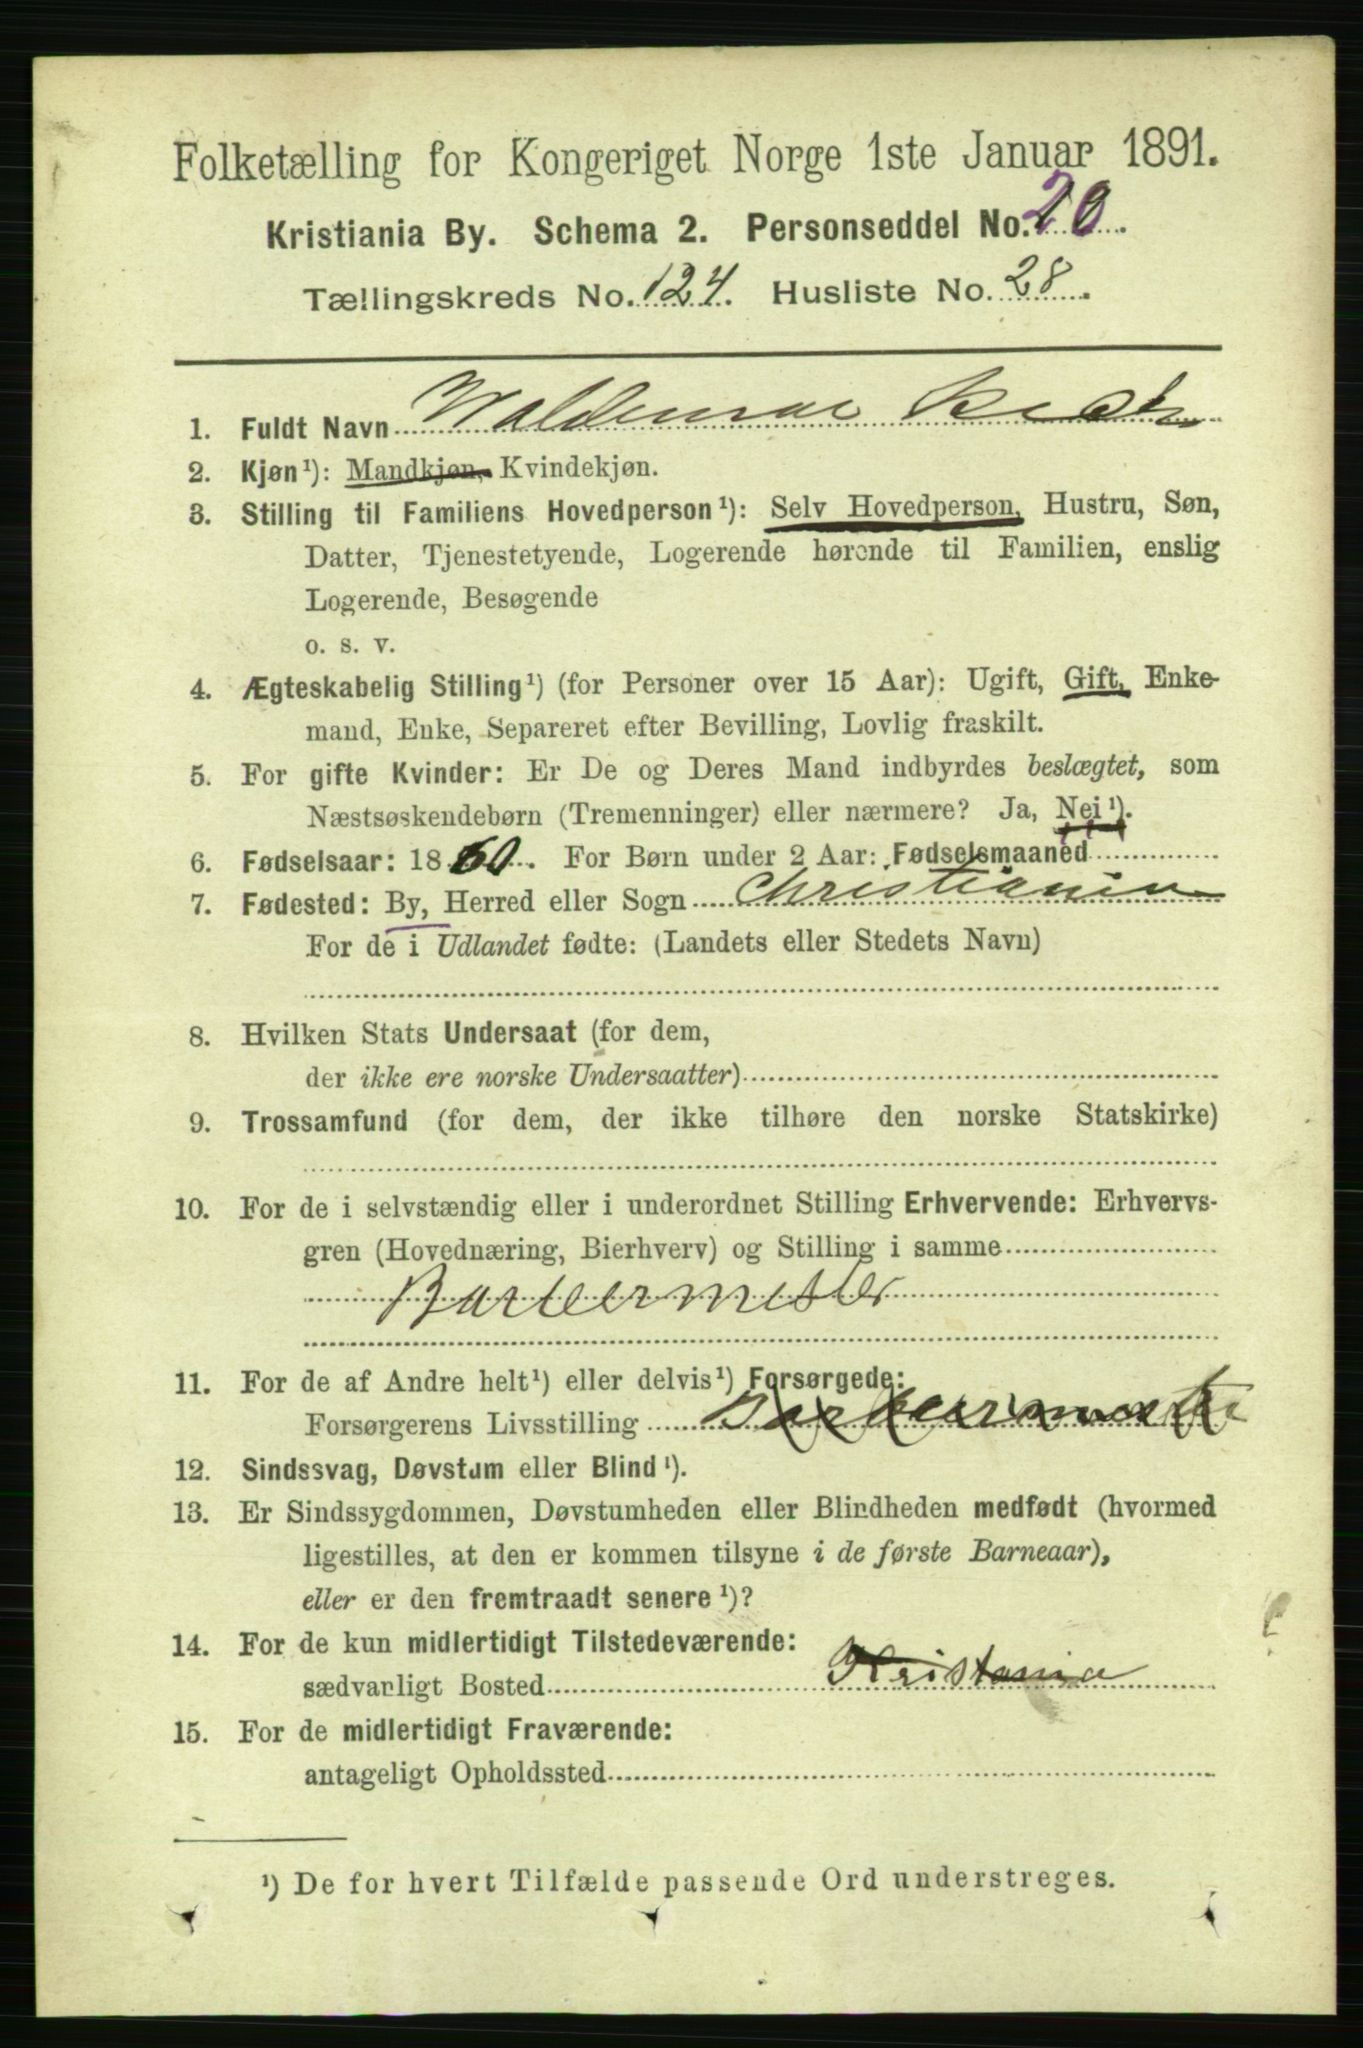 Folketælling for Kongeriget Norge 1ste Januar 1891.
Kristiania By. Schema 2. Personseddel No. 20.
Tællingskreds No. 124. Husliste No. 28.
1. Fuldt Navn Waldemar
2. Kjøn¹): Mandkjøn, Kvindekjøn.
3. Stilling til Familiens Hovedperson¹): Selv Hovedperson, Hustru, Søn,
Datter, Tjenestetyende, Logerende hørende til Familien, enslig
Logerende, Besøgende
o. s. v.
4. Ægteskabelig Stilling¹) (for Personer over 15 Aar): Ugift, Gift, Enke-
mand, Enke, Separeret efter Bevilling, Lovlig fraskilt.
5. For gifte Kvinder: Er De og Deres Mand indbyrdes beslægtet, som
Næstsøskendebørn (Tremenninger) eller nærmere? Ja, Nei¹).
6. Fødselsaar: 1860. For Børn under 2 Aar: Fødselsmaaned
7. Fødested: By, Herred eller Sogn Christiania
For de i Udlandet fødte: (Landets eller Stedets Navn)
8. Hvilken Stats Undersaat (for dem,
der ikke ere norske Undersaatter)
9. Trossamfund (for dem, der ikke tilhøre den norske Statskirke)
10. For de i selvstændig eller i underordnet Stilling Erhvervende: Erhvervs-
gren (Hovednæring, Bierhverv) og Stilling i samme
Barbermester
11. For de af Andre helt¹) eller delvis¹) Forsørgede:
Forsørgerens Livsstilling
12. Sindssvag, Døvstum eller Blind¹).
13. Er Sindssygdommen, Døvstumheden eller Blindheden medfødt (hvormed
ligestilles, at den er kommen tilsyne i de første Barneaar),
eller er den fremtraadt senere¹)?
14. For de kun midlertidigt Tilstedeværende:
sædvanligt Bosted Kristania
15. For de midlertidigt Fraværende:
antageligt Opholdssted
¹) De for hvert Tilfælde passende Ord understreges.